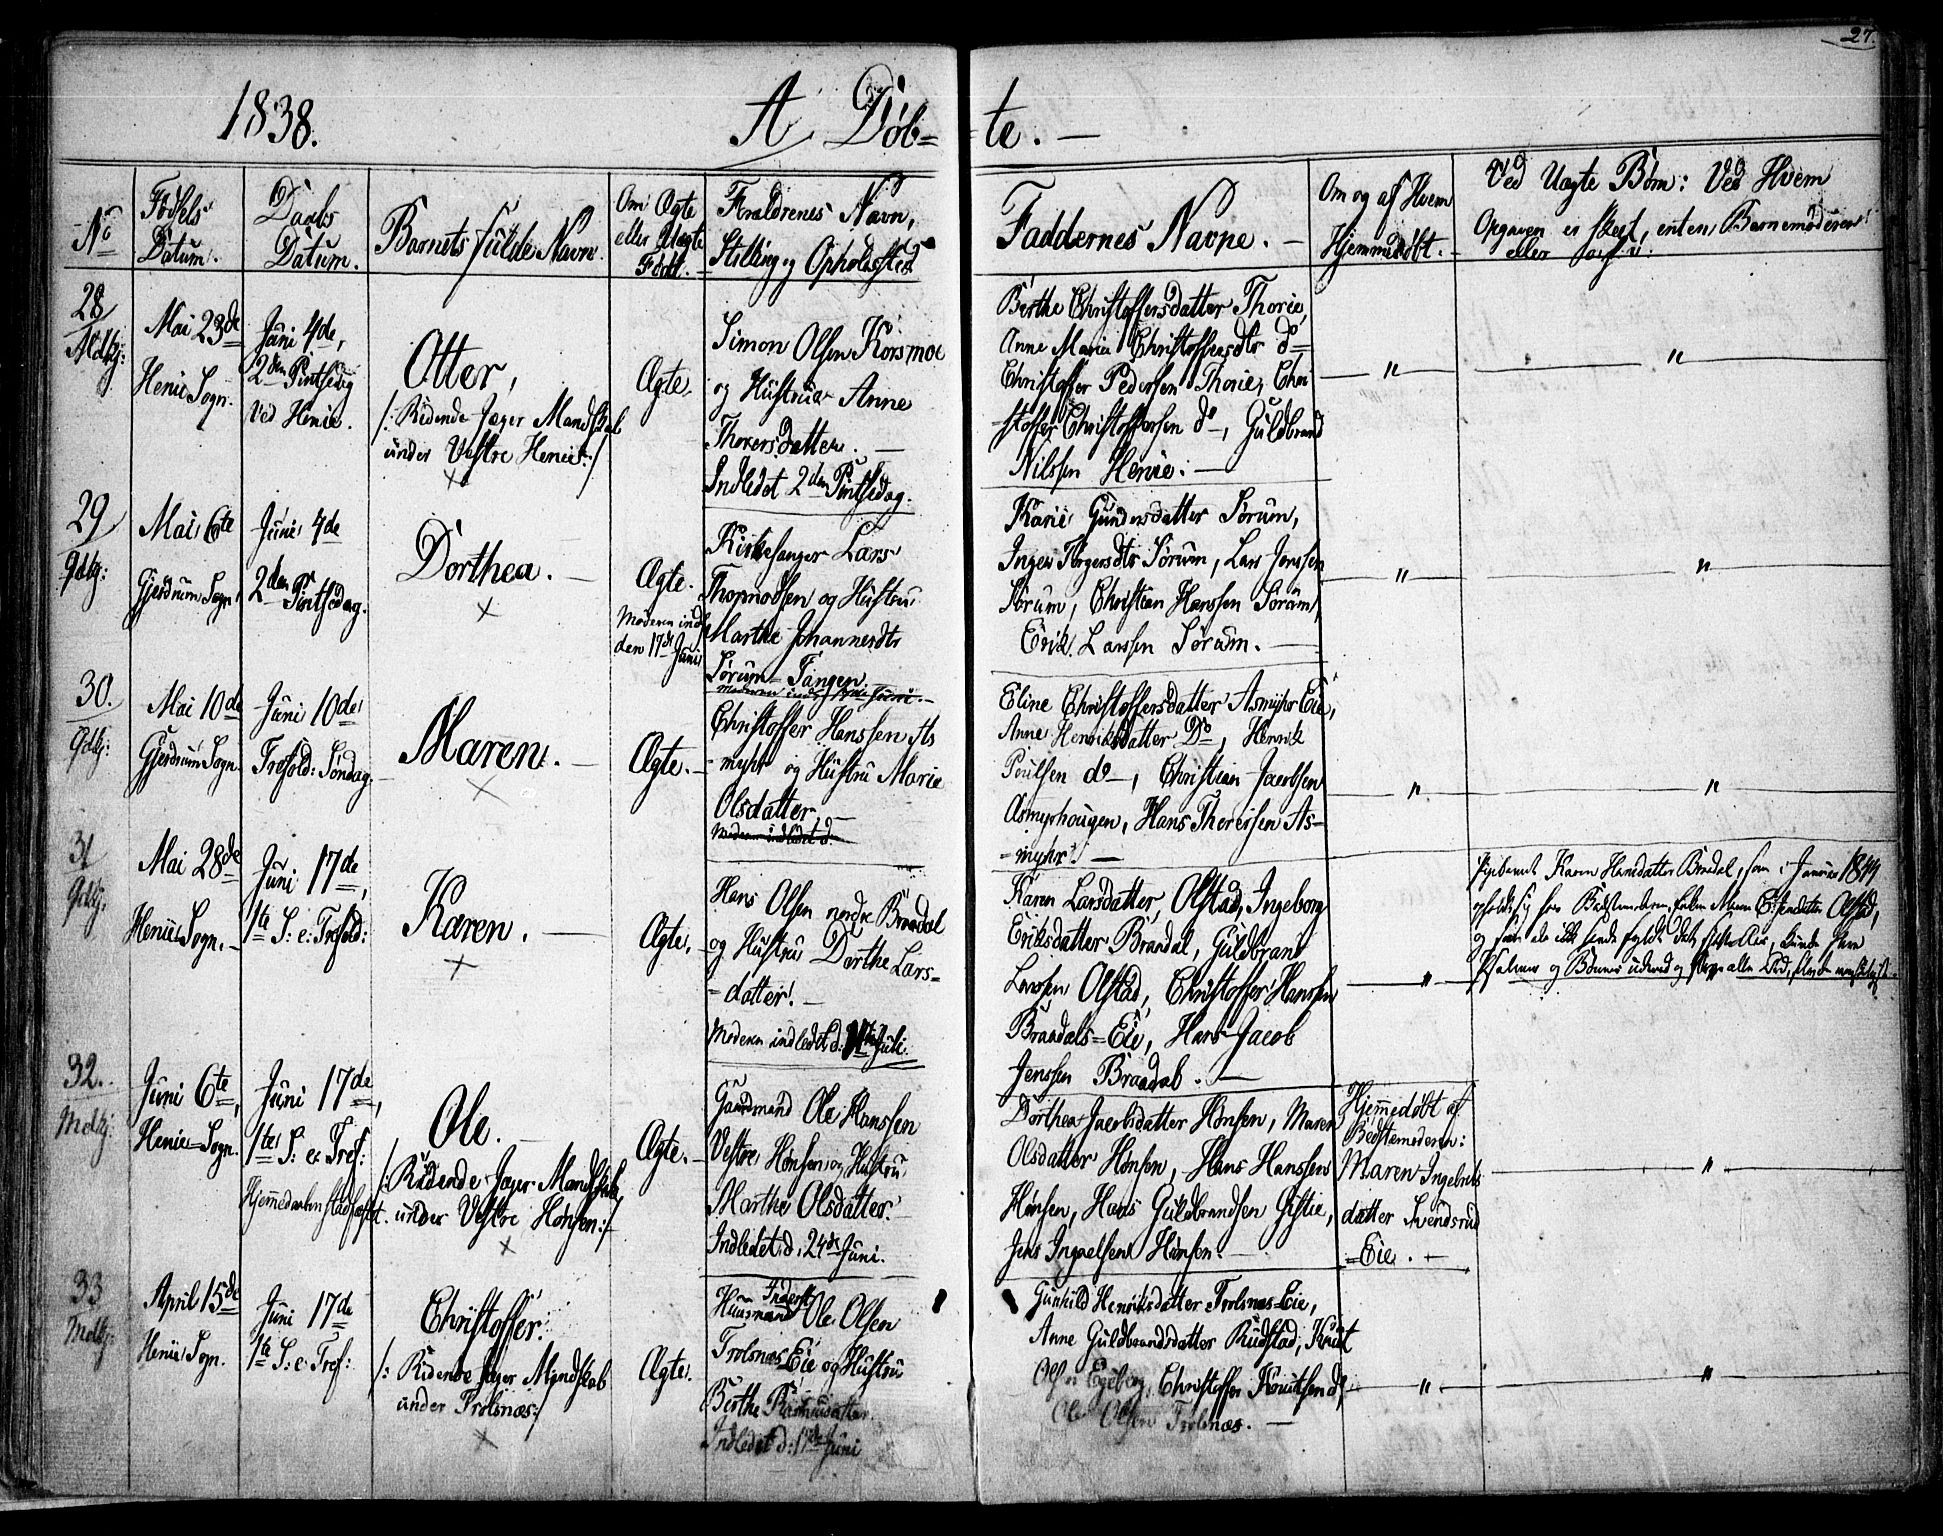 27.
1838. A, Döb=te. —
No
Födsels Datum.
Daabs Datum.
Barnets fulde Navn.
Om Ægte eller Uægte Födt.
Forældrenes Navn, Stilling og Opholdssted
Faddernes Navne. —
Om og af Hvem Hjemmedöbt. —
Ved Uægte Börn: Ved Hvem Opgaven er skeet, enten Barnemoderen eller
28
Mai 23de
Henie Sogn.
Juni 4de,
2den Pintsedag
ved Henie.
Otter,
/: Ridende Jæger Mandskab
under Vestre Henie :/
Ægte.
Simon Olsen Korsmoe
og Hustrue Anne
Thorersdatter. —
Indledet 2den Pintsedag.
Berthe Christoffersdatter Thorie,
Anne Marie Christoffersdtr do
Christoffer Pedersen Thorie, Chri
stoffer Christoffersen do —, Guldbrand
Nilssen Henie. —
"
"
29
Gdbg:
Mai 6te
Gjerdrum Sogn
Juni 4de
2den Pintsedag.
Dorthea. —
Ægte.
Moderen indl
den 17de Juni
Kirkesanger Lars
Thormodsen og Hustru
Marthe Johannesdtr
Sörum=Tangen.
Karie Gundersdatter Sörum,
Inger Torgersdtr Sörum, Lars Jenssen
Sörum, Christian Hanssen Sörum,
Erik Larssen Sörum. —
"
"
30.
Gdbg:
Mai 10de
Gjerdrum Sogn
Juni 10de
Trefold: Söndag.
Maren. —
Ægte. —
Christoffer Hanssen As
=myhr og Hustru Marie
Olsdatter. —
Moderen indledet d.
Eline Christoffersdatter Asmyhr Eie,
Anne Henriksdatter Do, Henrik
Poulsen do —, Christian Jacobsen
Asmyrhougen, Hans Theresen As-
=myhr. —
"
"
31
Gdbg.
Mai 28de
Henie Sogn. —
Juni 17de,
1ste S: e: Trefold:
Karen. —
Ægte.
Hans Olsen nordre Braadal
og Hustru Dorthe Lars=
=datter. —
Moderen indledet d: Juli.
Karen Larsdatter Olstad, Ingeborg
Eriksdatter Brandal, Guldbrand
Larssen Olstad, Christoffer Hanssen
Braadals=Eie, Hans Jacob
Jenssen Braadal. —
"
Pigebarnet Karen Hansdatter Bredal, som i Januar 1844
opholdt sig hos Bedstemoderen, Enken Maren Olstad,
og som da ikke havde fyldt det sjette Aar, kunde flere
Psalmer og Bönner udenad og alle
32.
Mdbg:
Juni 6te,
Henie=Sogn.
Juni 17de,
1ste S: e: Tref:
Hjemmedaaben stadfæstet.
Ole. —
/: Ridende Jæger Mandskab
under Vestre Hönsen :/
Ægte. —
Gaardmand Ole Hanssen
Vestre Hönsen og Hustru
Marthe Olsdatter.
Indledet d. 24de Juni.
Dorthea Jacobsdatter Hönsen, Maren
Olsdatter Hönsen, Hans Hanssen
Hönsen, Hans Guldbrandsen Gistie,
Jens Hönsen. —
Hjemmedöbt af
Bedstemoderen:
Maren Ingebrets
datter Svendsrud
=Eie. —
"
33
Mdbg:
April 15de
Henie Sogn.
Juni 17de
1ste S: e: Tref:
Christoffer.
/: Ridende Jæger Mandskab
under Trolsnæs :/
Ægte.
Inderst
Huusmand Ole Olsen
Trolsnæs Eie og Hustru
Berthe
Indledet d: 17de Juni
Gunhild Henriksdatter Trolsnæs=Eie,
Anne Guldbrandsdatter Rudstad, Knut
Olsen Egeberg, Christoffer Knutsen do
Ole Olsen Trolsnæs. —
"
"